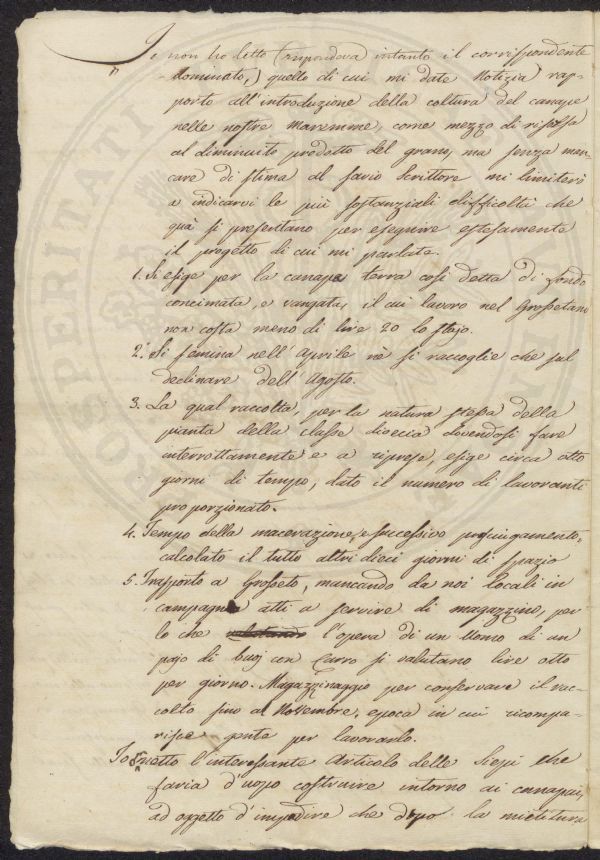 Io non ho letto (rispondeva intanto il corrispondente
dominato,) quello di cui mi date Notizia rap-
porto all'introduzione della coltura del canape
nelle nostre Maremme, come mezzo di risorsa
al diminuito prodotto del grano, ma senza man-
care di stima al savio Scrittore mi limiterò
a indicarvi le più sostanziali difficoltà che
quà si presentano per eseguire estesamente
il progetto di cui mi parlate.
1. Si esige per la canape terra così detta di fondo
concimata, e vangata, il cui lavoro nel Grossetano
non costa meno di lire 20 lo stajo.
2. Si semina nell'Aprile nè si raccoglie che sul
declinare dell'Agosto.
3. La qual raccolta, per la natura stessa della
pianta della classe dioecia dovendosi fare
interrottamente e a riprese, esige circa otto
giorni di tempo, dato il numero di lavoranti
proporzionato.
4. Tempo della macerazione, e successivo prosciugamento,
calcolato il tutto altri dieci giorni di spazio
5. Trasporto a Grosseto, mancando da noi locali in
campagna atti a servire di magazzino, per
lo che valutando l'opera di un Uomo di un
pajo di buoj con Carro si valutano lire otto
per giorno. Magazzinaggio per conservare il rac-
colto fino al Novembre, epoca in cui ricompa-
risce gente per lavorarlo.
Io ometto l'interessante Articolo delle Siepi che
faria d'uopo costruire intorno ai canapai,
ad oggetto d'impedire che dopo la mietitura